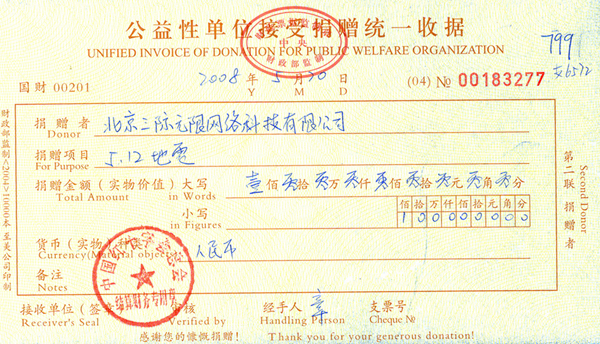 公益性单位接受捐赠统一收据
UNIFIED INVOICE OF DONATION FOR PUBLIC WELFARE ORGANIZATION
中央
财政部监制
799
支6572
国财 00201
2008年 5月20日
Y M D
(04) № 00183277
捐赠者 北京三际无限网络科技有限公司
Donor
捐赠项目 5.12地震
For Purpose
捐赠金额（实物价值）大写 壹佰零拾零万零仟零佰零拾零元零角零分
Total Amount in Words
小写 佰拾万仟佰拾元角分
in Figures 100000000
货币（实物） 人民币
Currency(Material objects)
备注
Notes
中国红十字会总会
结算财务专用章
接收单位（签章） 审核 经手人 支票号
Receiver's Seal Verified by Handling Person Cheque №
感谢您的慷慨捐赠！ Thank you for your generous donation!
第二联 捐赠者
Second Donor